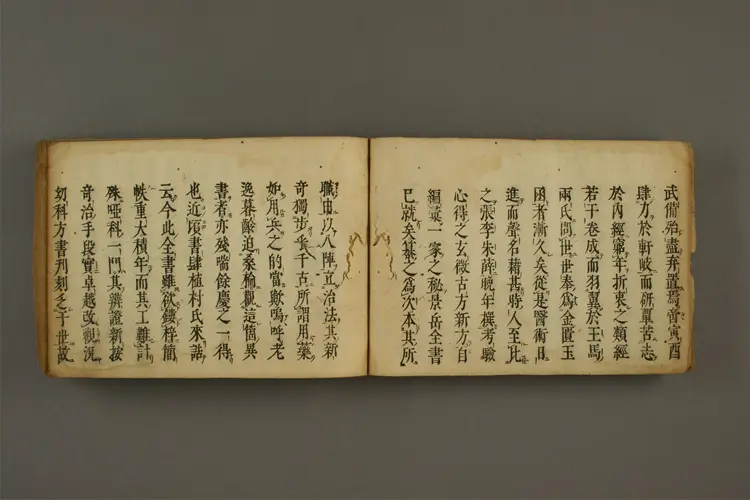 武備殆盡弃置焉嘗寅酉
肆力於軒岐而研覃苦志
於内經窮年折衷之類經
若干卷成而羽翼於王馬
兩氏問世世奉為金匱玉
函者漸久矣從是醫術日
進而聲名藉甚時人至比
之張李朱薛晩年撰考驗
心得之玄微古方新方自
編彙一家之秘景岳全書
已就矣纂之為次本其所
職由以八陣立治法其新
奇獨步乎千古所謂用藥
如用兵之的當歟嗚呼老
逸暮齡迫桑楡觀這箇異
書者亦殘喘餘慶之一得
也近頃書肆植村氏來話
云今此全書雖欲鏤梓簡
帙重大積年而其工難計
殊啞科一門其辨證新按
奇治手段實卓越改觀況
幼科方書刋刻乏于世故